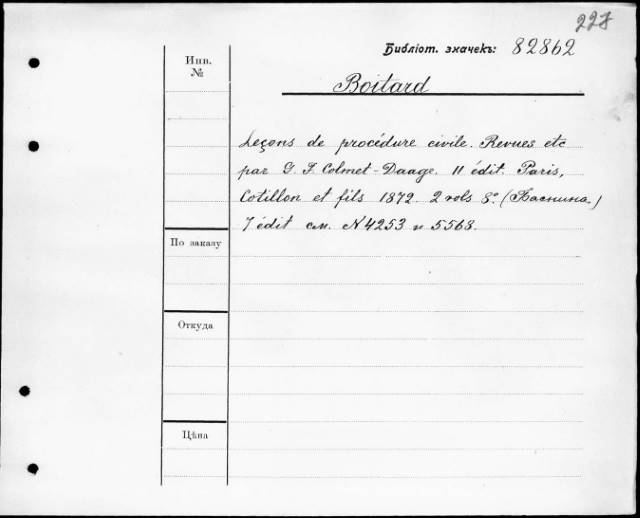 228
Библіот. значекъ: 82862
Инв.
№
Boitard
Leçons de procédure civile. Revues etc
par G. F. Colmet-Daage. 11 édit. Paris,
Cotillon et fils 1872. 2 vols 8º. (Баснина)
7 édit см. N 4253 и 5568.
По заказу
Откуда
Цѣна